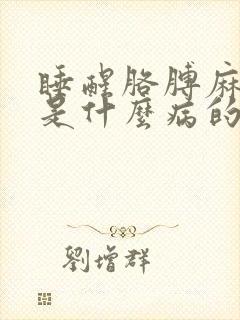 睡醒胳膊麻
是什麼病的
劉增群